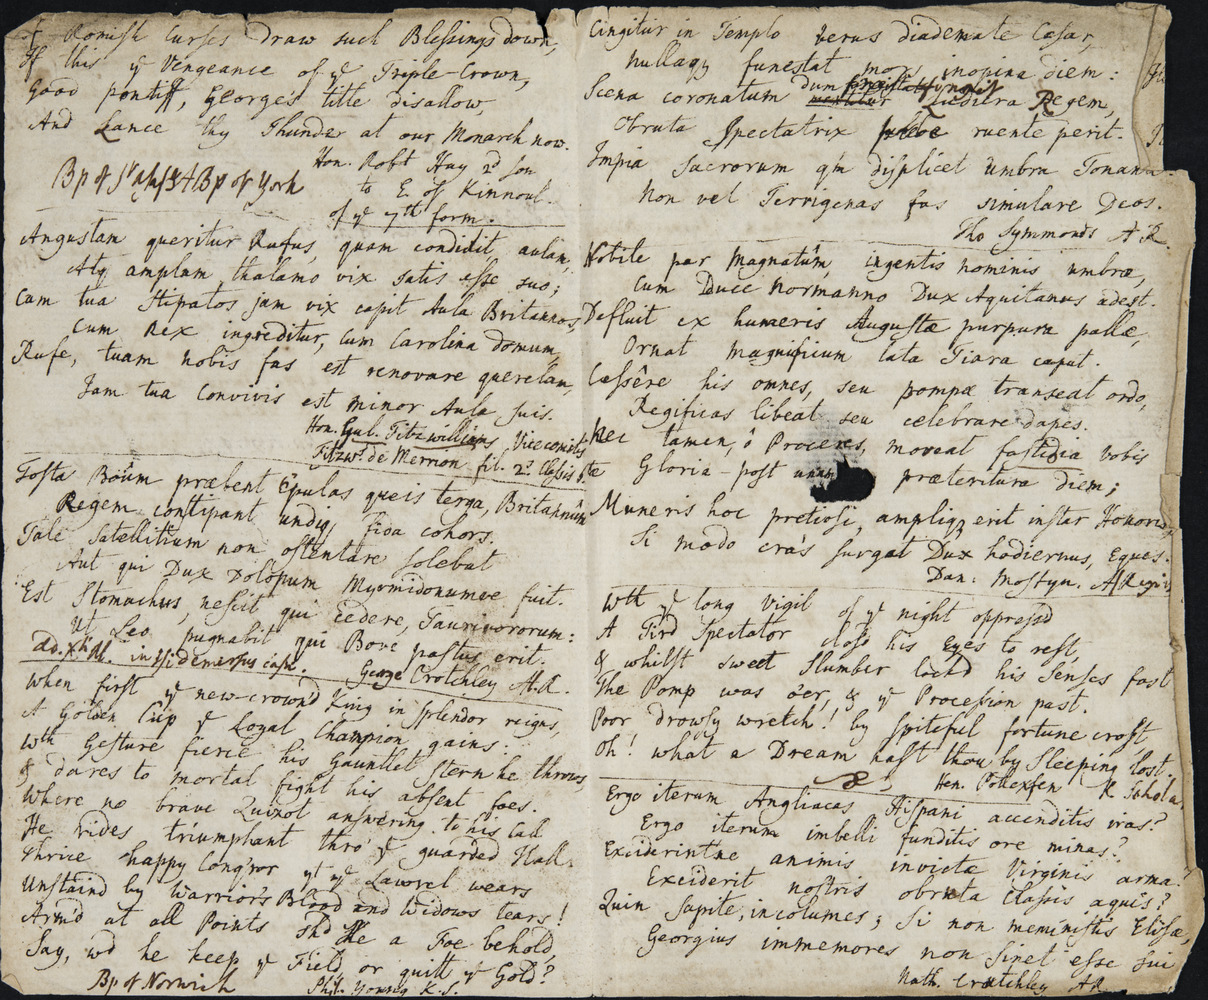 If Romish Curses draw such Blessings down,
If this ye Vengeance of ye Triple-Crown,
Good pontiff, George's title disallow,
And Lance thy Thunder at our Monarch now.
Hon. Robt Hay 2d Son
to E. of Kinnoul.
of ye 7th form.
Bp of St Asaph & ABp of York
Angustam queritur Rufus, quam condidit, aulam,
Atq amplam thalamo vix satis esse suo;
Cum tua stipatos jam vix capit Aula Britannos,
Cum Rex ingreditur, cum Carolina domum,
Rufe, tuam nobis fas est renovare querelam,
Jam tua Convivis est minor Aula suis.
Hon. Gul. Fitzwilliams Vicecomitis
Fitzwm. de Merrion fil. 2s. Classis 6tæ
Tosta Boûm præbent Epulas queis terga, Britannûm
Regem constipant undiq fida cohors.
Tale Satellitium non ostentare solebat
Aut qui Dux Dolopum Myrmidonumve fuit.
Est Stomachus, nescit qui cedere, Taurivororum:
Ut Leo pugnabit qui Bove pastus erit.
George Crotchley A.R.
When first ye new-crown'd King in splendor reigns,
A Golden Cup ye Loyal Champion gains.
Wth Gesture fierce his Gauntlet stern he throws,
& dares to mortal fight his absent foes.
Where no brave Quixot answering to his Call
He rides triumphant thro' ye guarded Hall.
Thrice happy Conq'ror yt ye Lawrel wears
Unstaind by Warriors Blood and Widows tears!
Arm'd at all Points shd He a Foe behold,
Say, wd he keep ye Field, or quitt ye Gold?
Bp of Norwich Phil. Young K.S.
Cingitur in Templo verus diademate Cæsar,
Nullaq funestat mors inopina diem:
Scena coronatum dum Ludicra Regem,
Obruta Spectatrix ruente perit.
Impia sacrorum qm displicet umbra Tonanti
Non vel Terrigenas fas simulare Deos.
Tho Symmonds A.R.
Nobile par Magnatûm, ingentis nominis umbræ,
Cum Duce Normanno Dux Aquitanus adest.
Defluit ex humeris Augustæ purpura pallæ,
Ornat magnificum lata Tiara caput.
Cessêre his omnes, seu pompæ transeat ordo,
Regificas libeat seu celebrare dapes.
Nec tamen, ô Proceres, moveat fastidia vobis
Gloria-post unam præteritura diem;
Muneris hoc pretiosi, ampliq erit instar Honoris,
Si modo cras surgat Dux hodiernus, Eques.
Dan: Mostyn.
Wth ye long Vigil of ye night oppressd
A Tird Spectator closd his Eyes to rest,
& whilst sweet Slumber lockd his Senses fast
The Pomp was o'er, & ye Procession past.
Poor drowsy wretch! by spiteful fortune crost
Oh! what a Dream hast thou by Sleeping lost.
Hen. Pollexfen R. Schola.
Ergo iterum Angliacas Hispani accenditis iras?
Ergo iterum imbelli funditis ore minas?
Exciderintne animis invictæ Virginis arma?
Exciderit nostris obruta Classis aquis?
Quin Sapite, incolumes; Si non meministis Elisæ,
Georgius immemores non sinet esse sui
Nath. Crotchley AR